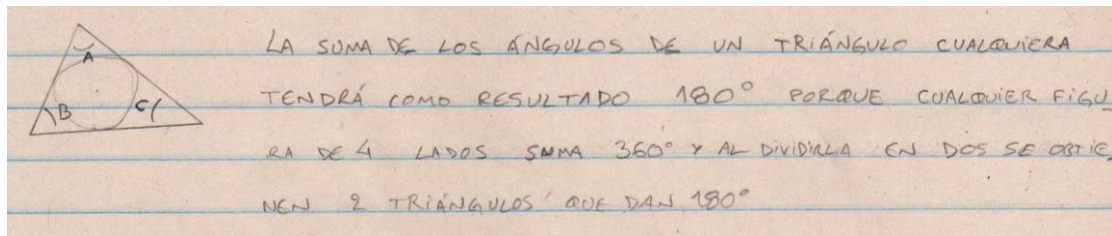 A
B
C
LA SUMA DE LOS ÁNGULOS DE UN TRIÁNGULO CUALQUIERA
TENDRÁ COMO RESULTADO 180° PORQUE CUALQUIER FIGU
RA DE 4 LADOS SUMA 360° Y AL DIVIDIRLA EN DOS SE OBTIE
NEN 2 TRIÁNGULOS QUE DAN 180°